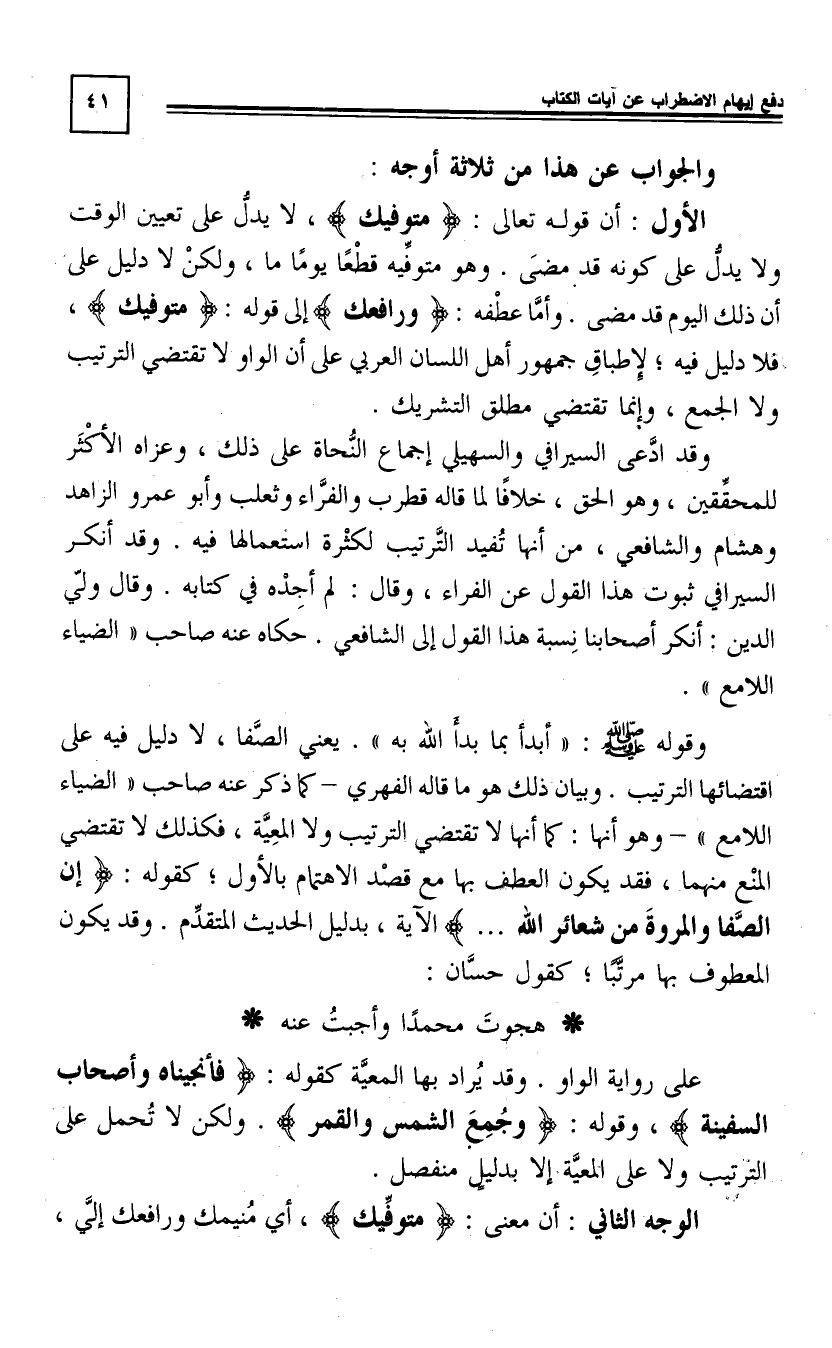 دفع إيهام الاضطراب عن آيات الكتاب
٤١
والجواب عن هذا من ثلاثة أوجه :
الأول : أن قوله تعالى : ﴿ متوفيك ﴾ ، لا يدلُّ على تعيين الوقت
ولا يدلُّ على كونه قد مضَى . وهو متوفِّيه قطْعًا يومًا ما ، ولكنْ لا دليل على
أن ذلك اليوم قد مضى . وأمَّا عطْفه : ﴿ ورافعك ﴾ إلى قوله : ﴿ متوفيك ﴾ ،
فلا دليل فيه ؛ لإطباقِ جمهور أهل اللسان العربي على أن الواو لا تقتضي الترتيب
ولا الجمع ، وإنما تقتضي مطلق التشريك .
وقد ادَّعى السيرافي والسهيلي إجماع النُّحاة على ذلك ، وعزاه الأكْثَر
للمحقِّقين ، وهو الحق ، خلافًا لما قاله قطرب والفرَّاء وثعلب وأبو عمرو الزاهد
وهشام والشافعي ، من أنها تُفيد التَّرتيب لكثْرة استعمالها فيه . وقد أنكر
السيرافي ثبوت هذا القول عن الفراء ، وقال : لم أجِدْه في كتابه . وقال وليّ
الدين : أنكر أصحابنا نِسبة هذا القول إلى الشافعي . حكاه عنه صاحب « الضياء
اللامع » .
وقوله ﷺ : « أبدأ بما بدأَ الله به » . يعني الصَّفا ، لا دليل فيه على
اقتضائها الترتيب . وبيان ذلك هو ما قاله الفهري – كما ذكر عنه صاحب « الضياء
اللامع » – وهو أنها : كما أنها لا تقتضي الترتيب ولا المعِيَّة ، فكذلك لا تقتضي
المنْع منهما ، فقد يكون العطف بها مع قصْد الاهتمام بالأول ؛ كقوله : ﴿ إن
الصَّفا والمروةَ من شعائر الله ... ﴾ الآية ، بدليل الحديث المتقدِّم . وقد يكون
المعطوف بها مرتَّبًا ؛ كقول حسَّان :
* هجوتَ محمدًا وأجبتُ عنه *
على رواية الواو . وقد يُراد بها المعيَّة كقوله : ﴿ فأنجيناه وأصحاب
السفينة ﴾ ، وقوله : ﴿ وجُمِعَ الشمس والقمر ﴾ . ولكن لا تُحمل على
الترتيب ولا على المعيَّة إلا بدليلٍ منفصل .
الوجه الثاني : أن معنى : ﴿ متوفِّيك ﴾ ، أي مُنيمك ورافعك إليَّ ،